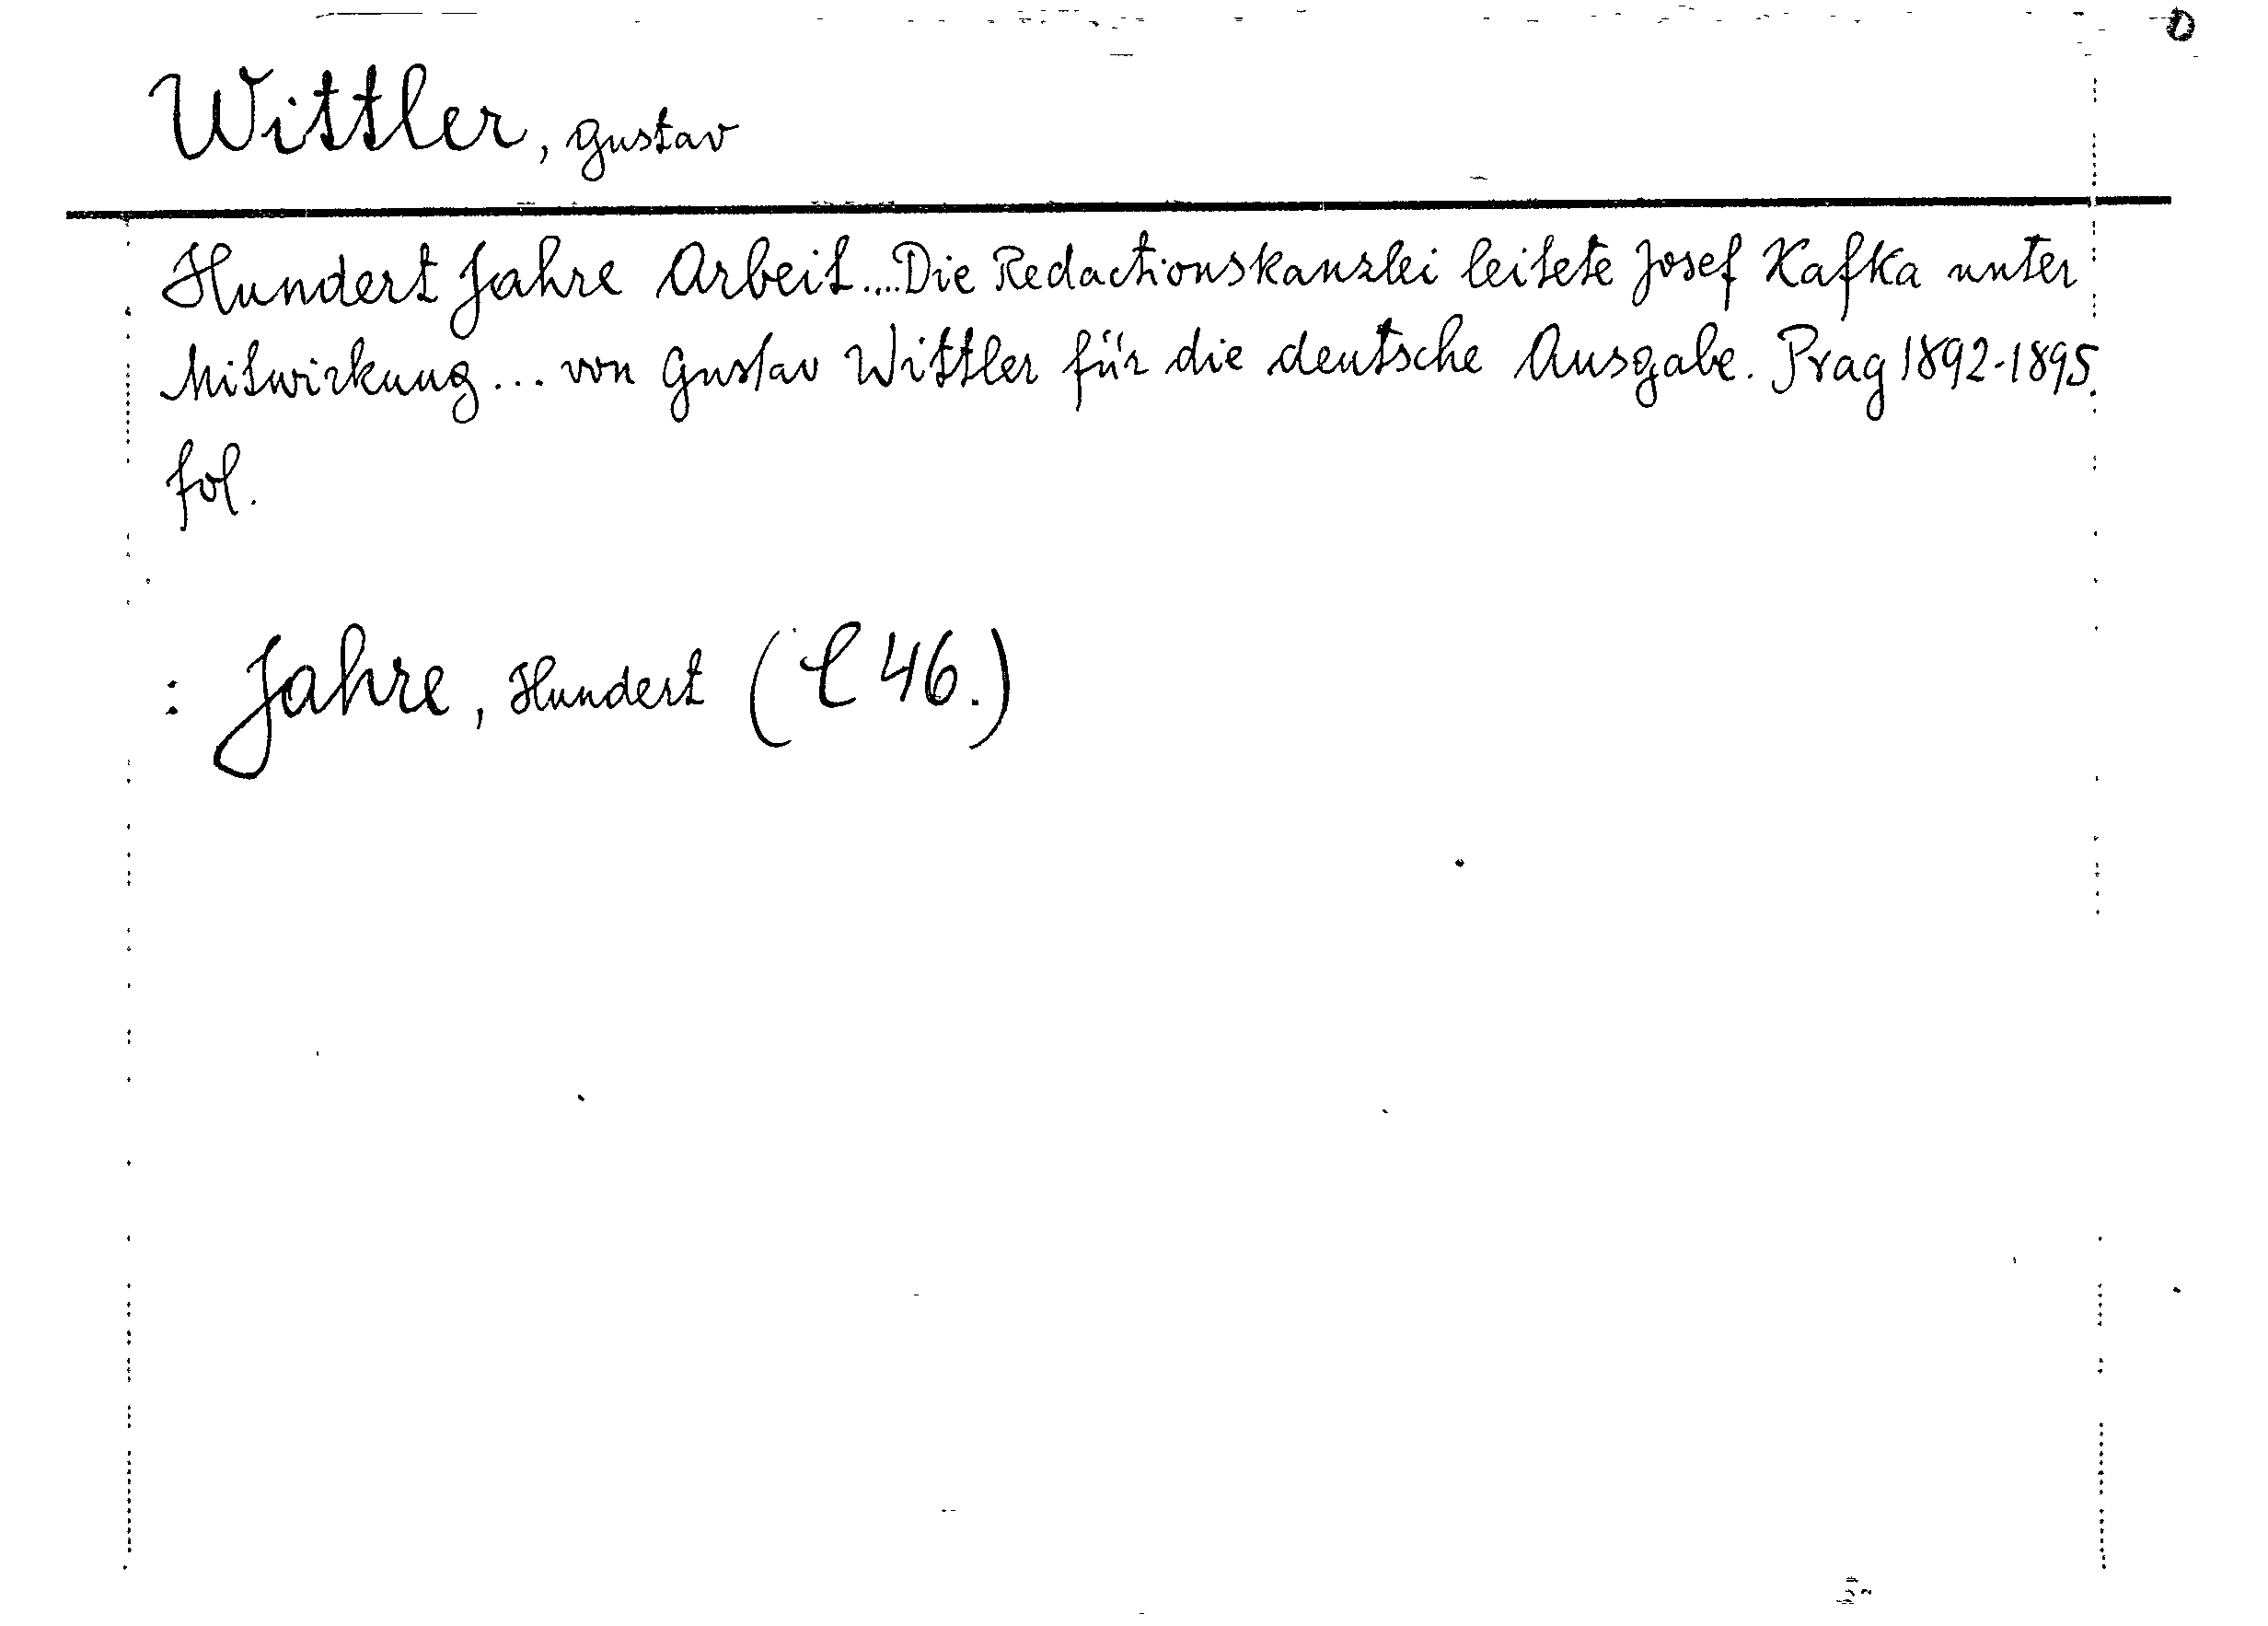 Wittler, Gustav
Hundert Jahre Arbeit....Die Redactionskanzlei leitete Josef Kafka unter
Mitwirkung... von Gustav Wittler für die deutsche Ausgabe. Prag 1892-1895.
fol.
: Jahre, Hundert ( 46.)